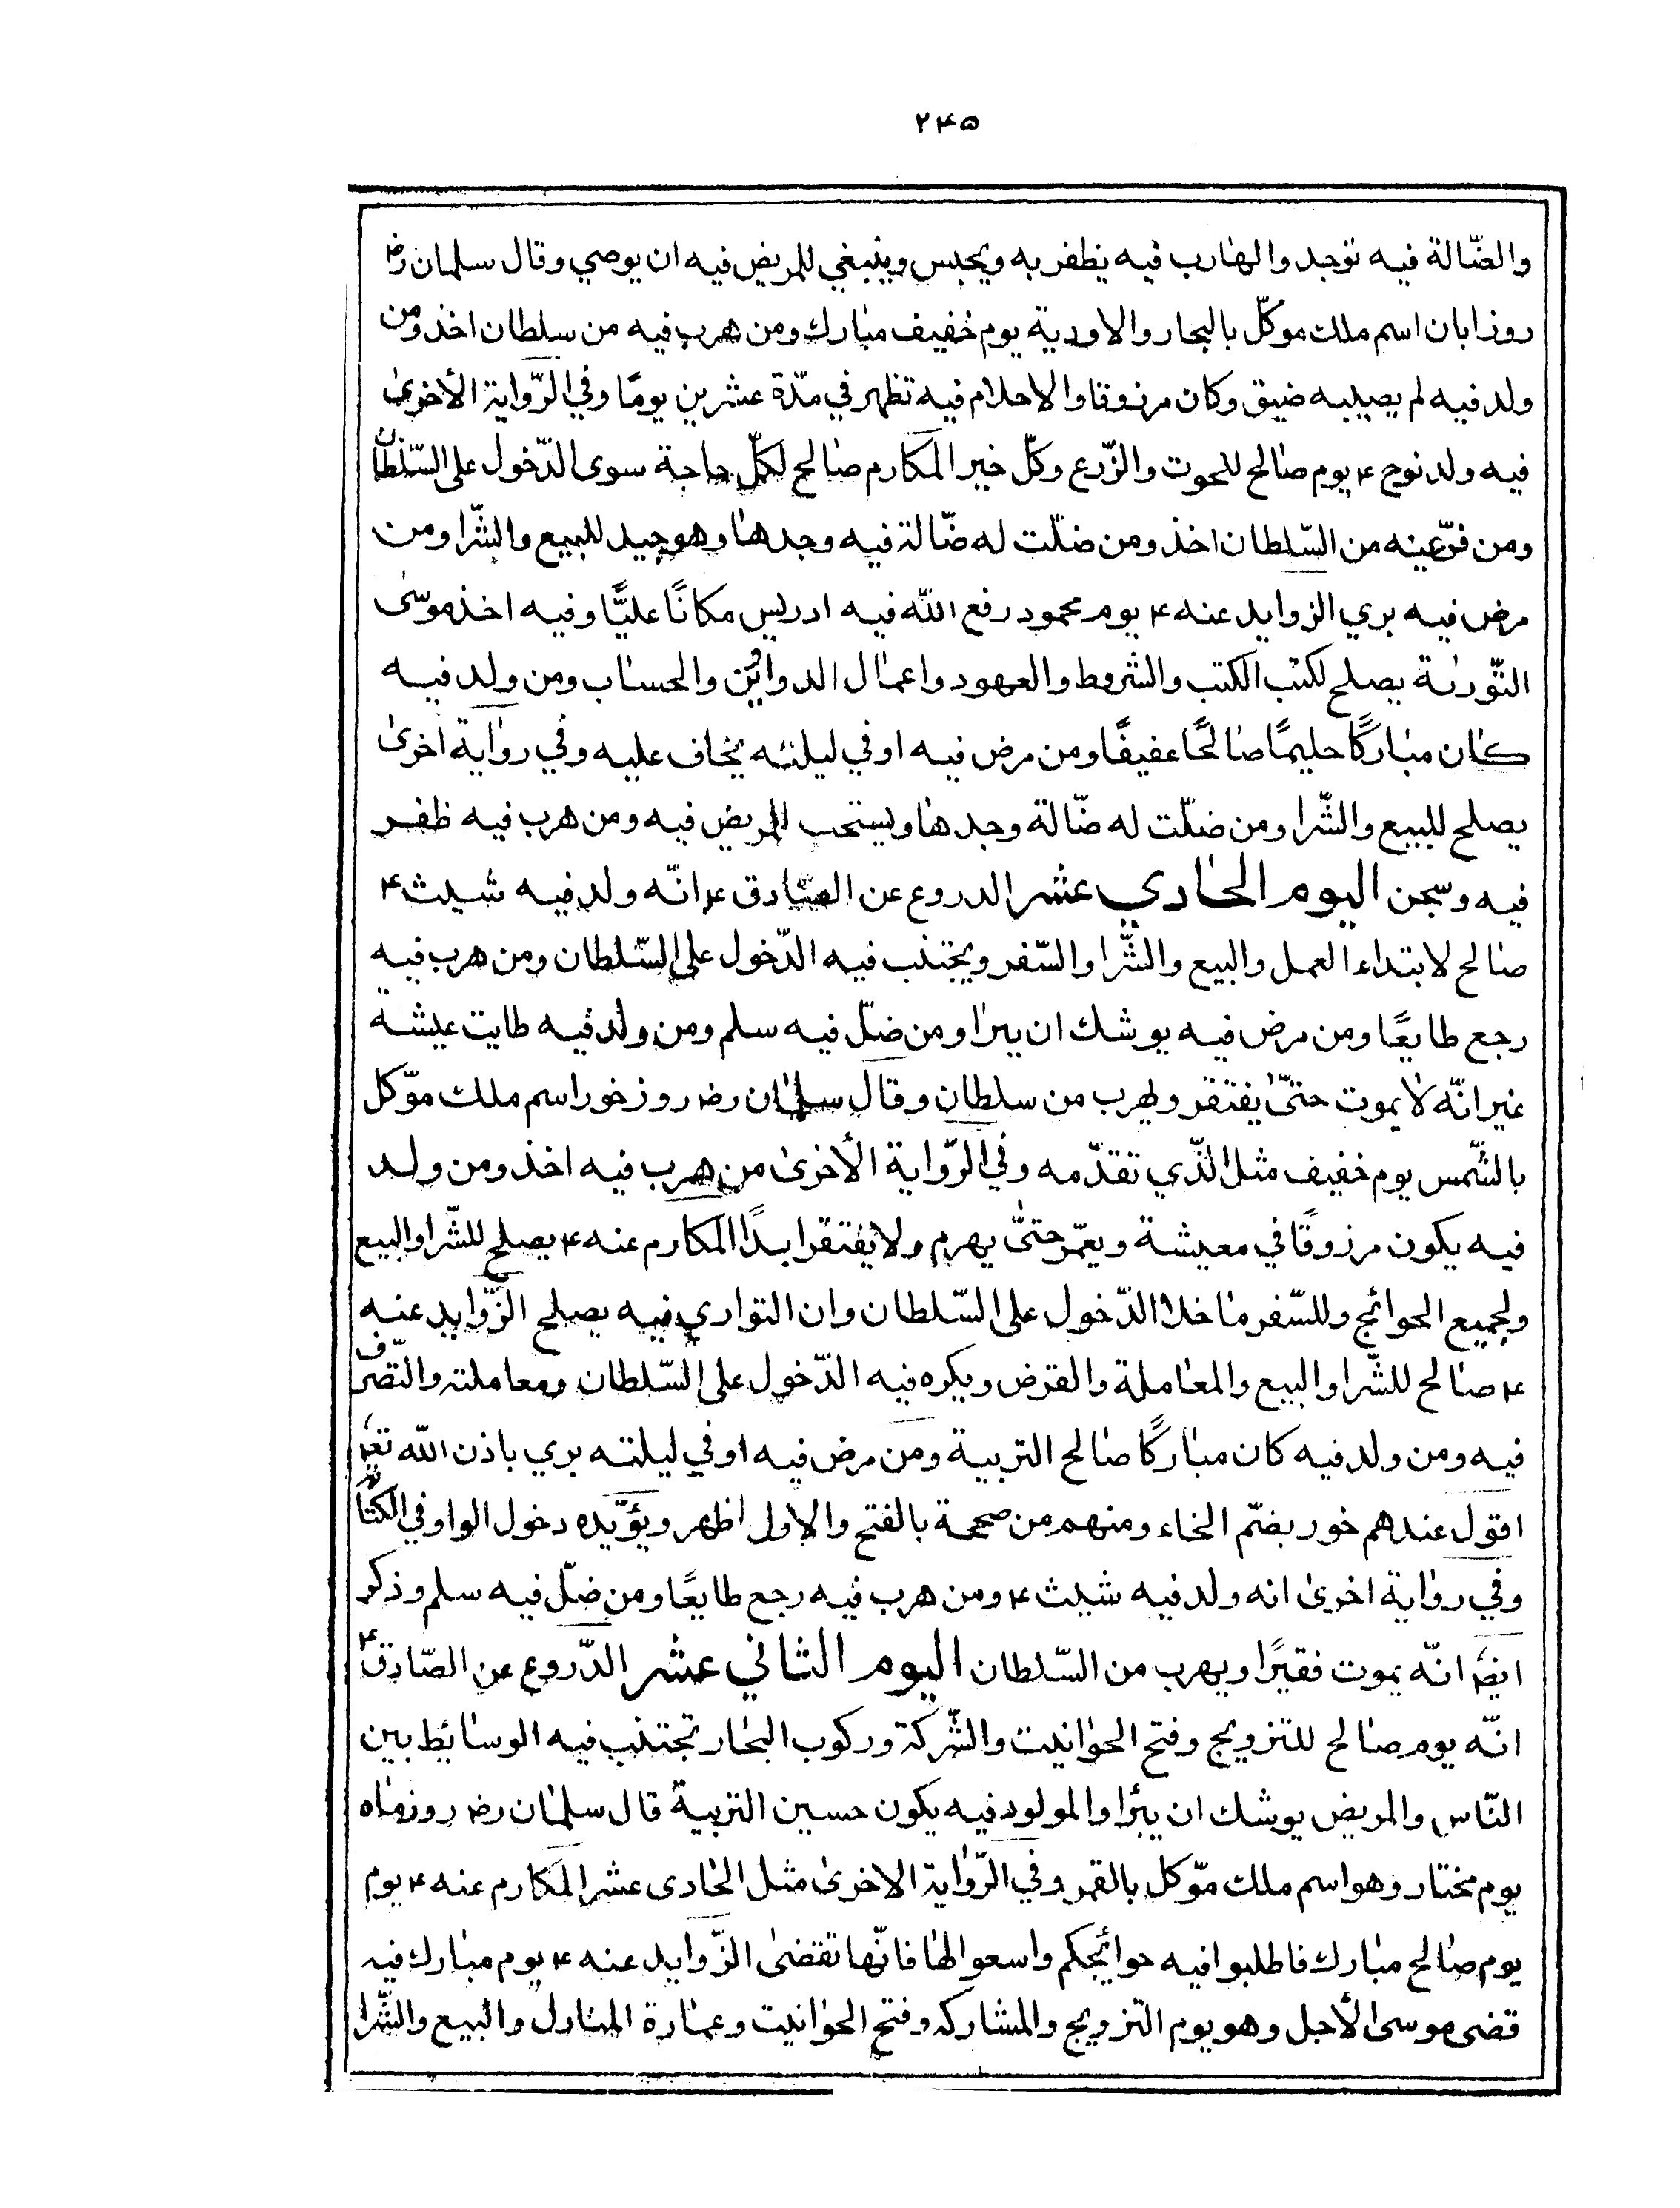 ۲۴۵
والضّالة فيه توجد والهارب فيه يظفر به ويحبس وينبغي للمريض فيه ان يوصي وقال سلمان رض
روز ابان اسم ملك موكّل بالبحار والاودية يوم خفيف مبارك ومن هرب فيه من سلطان اخذ ومن
ولد فيه لم يصيبه ضيق وكان مرزوقا والاحلام فيه تظهر في مدّة عشرين يومًا وفي الرّواية الأخرى
فيه ولد نوح ۴ يوم صالح للحوت والزّرع وكلّ خير المكارم صالح لكلّ حاجة سوى الدّخول على السّلطان
ومن فرّ عينه من السّلطان اخذ ومن ضلّت له ضّالة فيه وجدها وهو جيد للبيع والشّرا ومن
مرض فيه بري الزوايد عنه ۴ يوم محمود رفع الله فيه ادريس مكانًا عليًّا وفيه اخذ موسى
التّورية يصلح لكتب الكتب والشروط والعهود واعمال الدواوين والحساب ومن ولد فيه
كان مباركًا حليمًا صالحًا عفيفًا ومن مرض فيه او في ليلته يخاف عليه وفي رواية اخرى
يصلح للبيع والشّرا ومن ضلّت له ضّالة وجدها ويستحب للمريض فيه ومن هرب فيه ظفر
فيه وسجن اليوم الحادي عشر الدروع عن الصّادق ۴ انّه ولد فيه شيث ۴
صالح لابتداء العمل والبيع والشّرا والسّفر ويجتنب فيه الدّخول على السّلطان ومن هرب فيه
رجع طايعًا ومن مرض فيه يوشك ان يبرا ومن ضلّ فيه سلم ومن ولد فيه طابت عيشة
غير انّه لا يموت حتّى يفتقر ويهرب من سلطان وقال سلمان رض روز خور اسم ملك موّكل
بالشّمس يوم خفيف مثل الّذي تقدّمه وفي الرّواية الأخرى من هرب فيه اخذ ومن ولد
فيه يكون مرزوقًا في معيشة ويعمّر حتّى يهرم ولا يفتقر ابدًا المكارم عنه ۴ يصلح للشّرا والبيع
ولجميع الحوائج وللسّفر ما خلا الدّخول على السّلطان وان التواري فيه يصلح الزّوايد عنه
۴ صالح للشّرا والبيع والمعاملة والقرض ويكره فيه الدّخول على السّلطان ومعاملته والتّصرّف
فيه ومن ولد فيه كان مباركًا صالح التربية ومن مرض فيه او في ليلته بري باذن الله تعم
اقول عندهم خور بضمّ الخاء ومنهم من صححة بالفتح والاول اظهر ويؤيّده دخول الواو في الكتاب
وفي رواية اخرى انه ولد فيه شيث ۴ ومن هرب فيه رجع طايعًا ومن ضلّ فيه سلم وذكر
ايضا انّه يموت فقيرًا ويهرب من السّلطان اليوم الثاني عشر الدّروع عن الصّادق ۴
انّه يوم صالح للتزويج وفتح الحوانيت والشّركة وركوب البحار تجتنب فيه الوسائط بين
النّاس والمريض يوشك ان يبرٔا والمولود فيه يكون حسين التربية قال سلمان رض روز ماه
يوم مختار وهو اسم ملك موّكل بالقمر وفي الرّواية الاخرى مثل الحادى عشر المكارم عنه ۴ يوم
يوم صالح مبارك فاطلبوا فيه حوائجكم واسعوا لها فانّها تقتضى الزّوايد عنه ۴ يوم مبارك فيه
قضى موسى الأجل وهو يوم التزويج والمشاركه وفتح الحوانيت وعمارة المنازل والبيع والشّرا